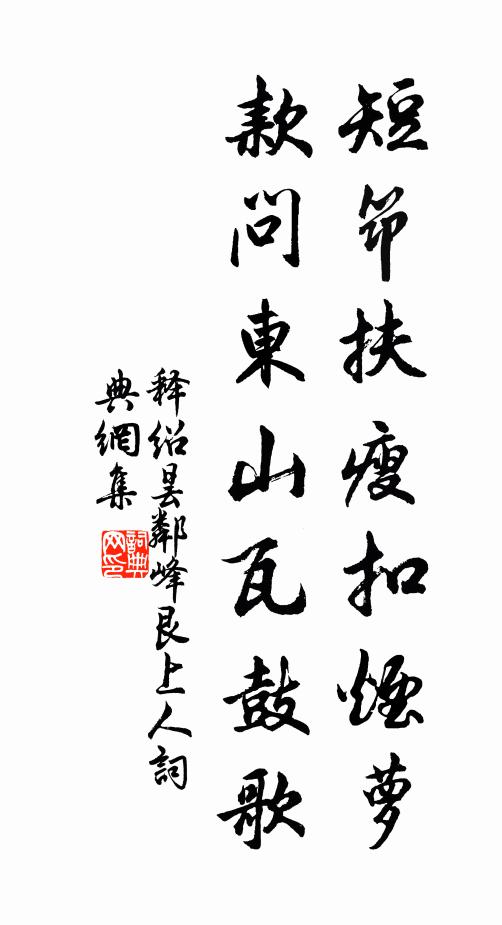 短筇扶瘦扣煙蘿
款問東山瓦鼓歌
釋紹曇鄰峰艮上人詞
典網集
詞典网印